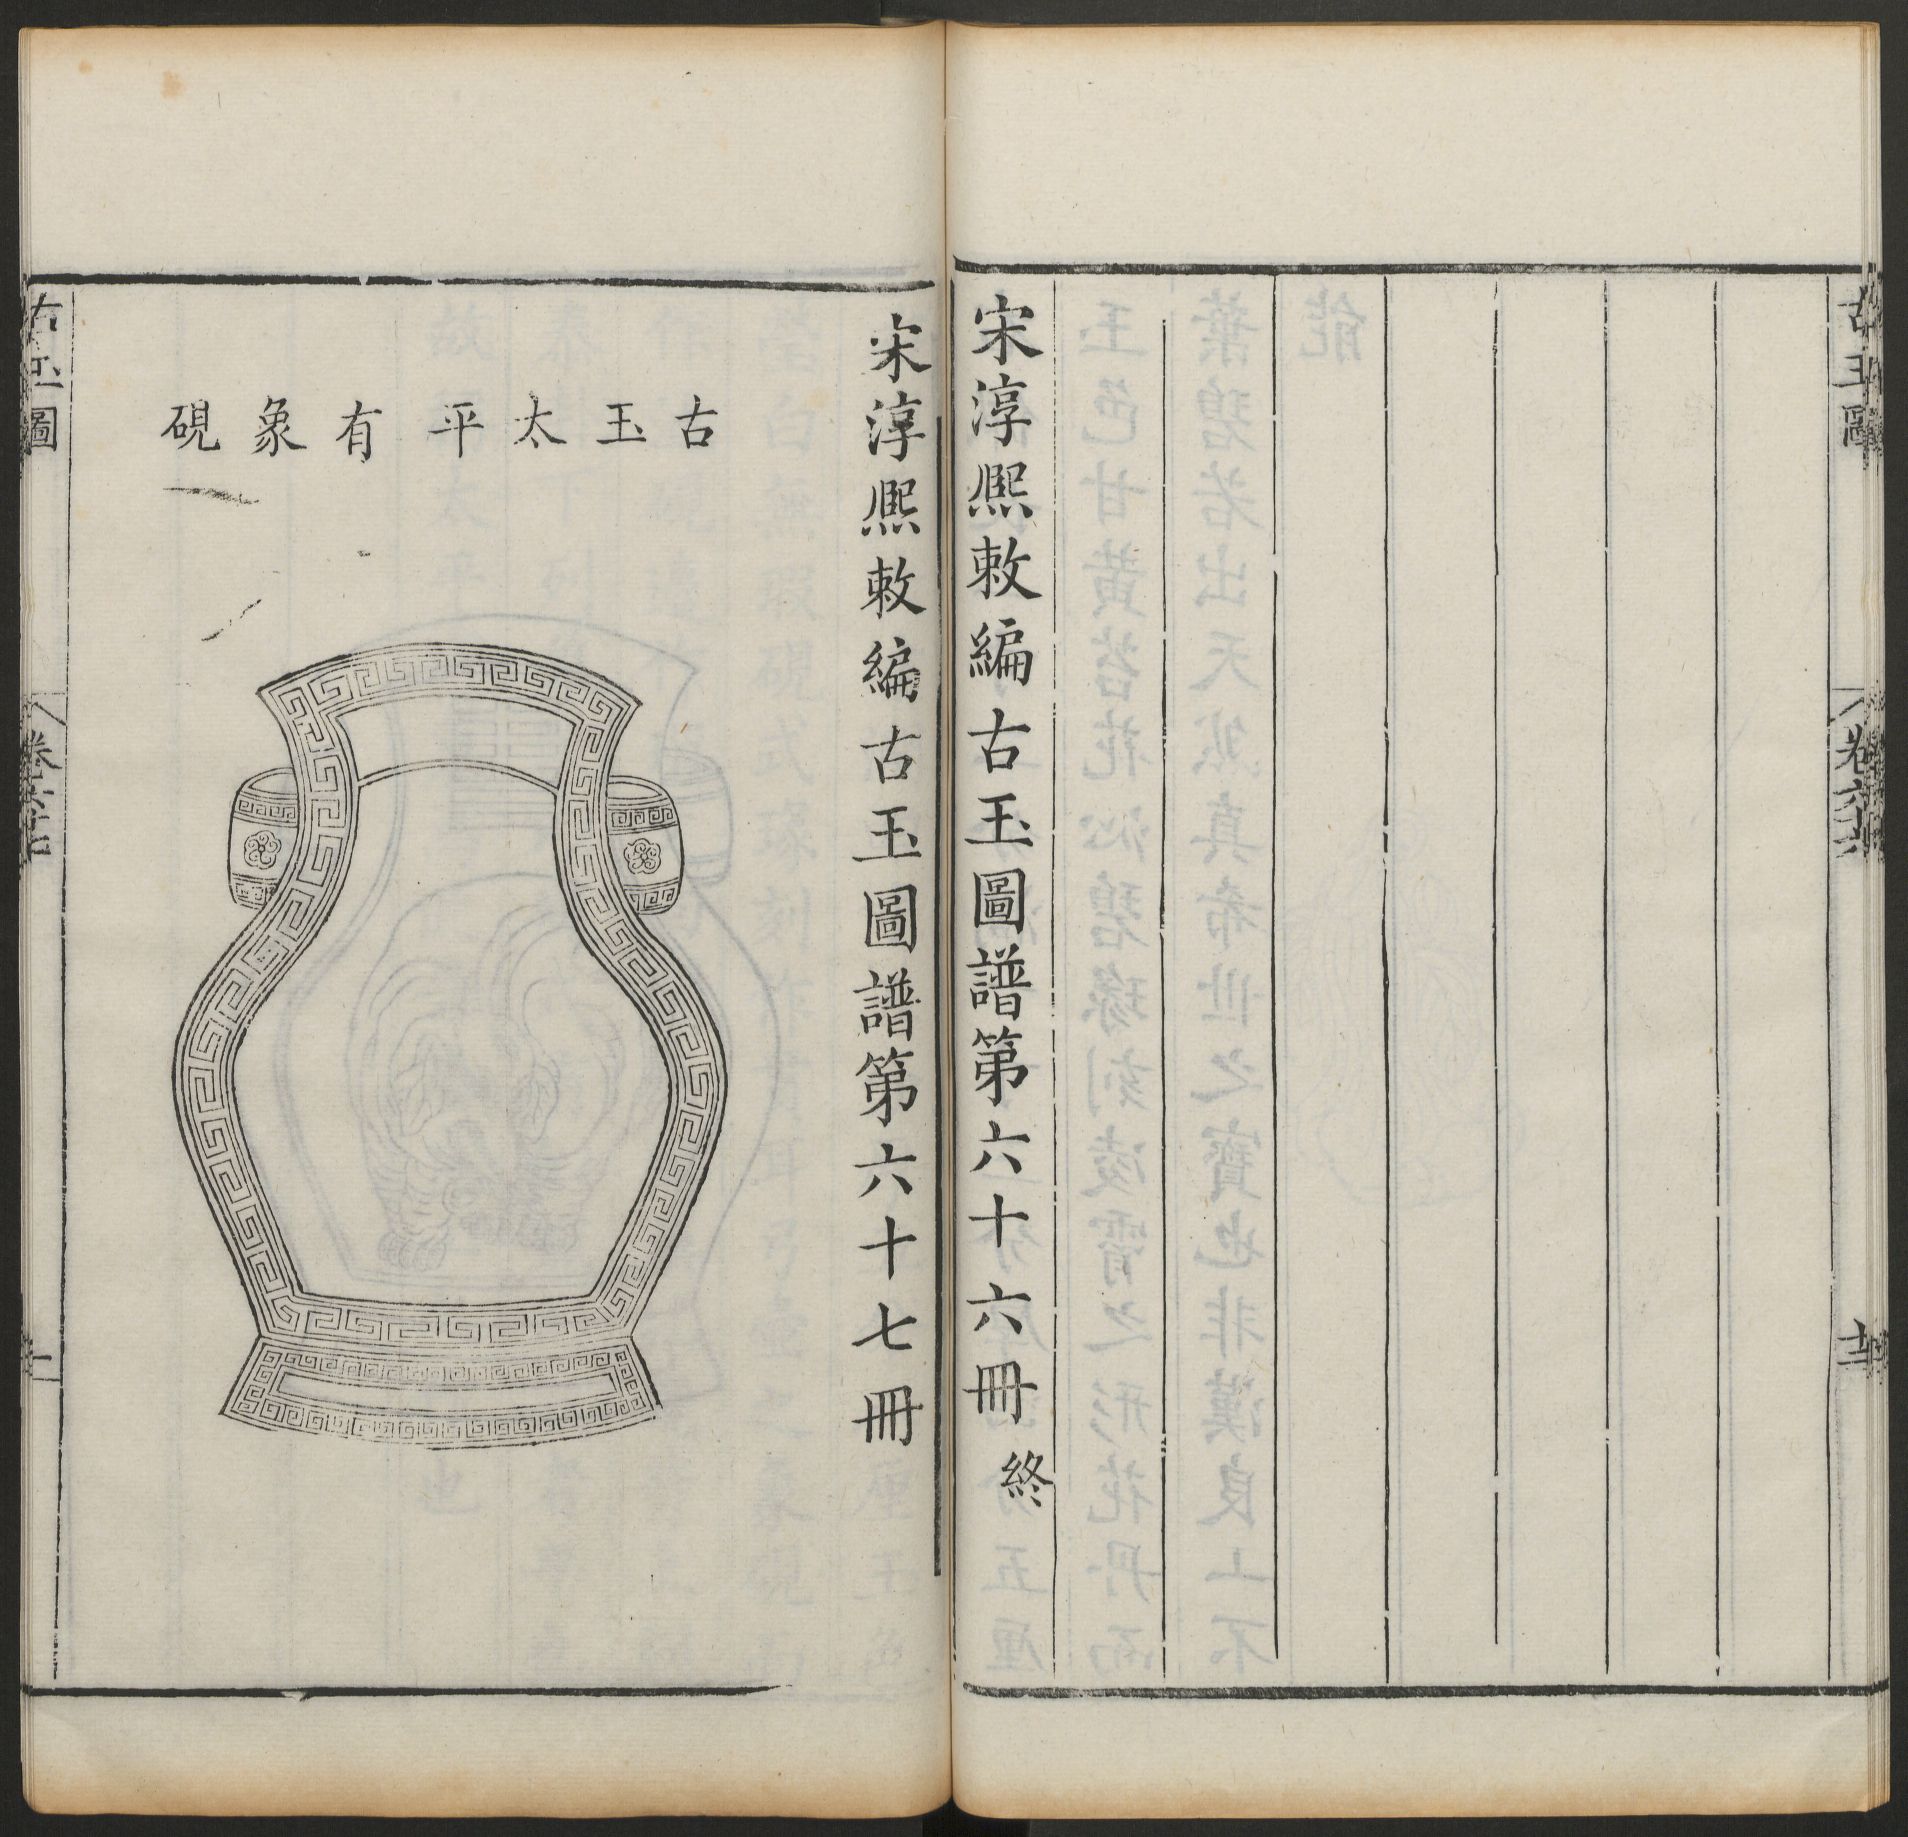 古玉圖
卷六十六
宋淳熙敕編古玉圖譜第六十六冊 終
宋淳熙敕編古玉圖譜第六十七冊
古玉太平有象硯
古玉圖
一